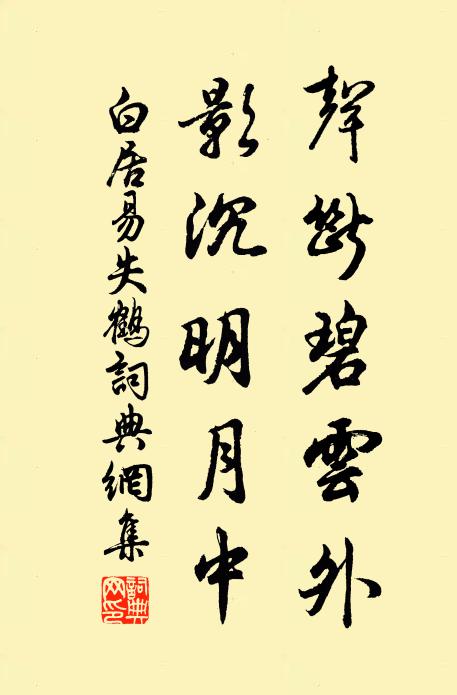 聲斷碧雲外
影沉明月中
白居易失鶴詞典網集
詞典網印